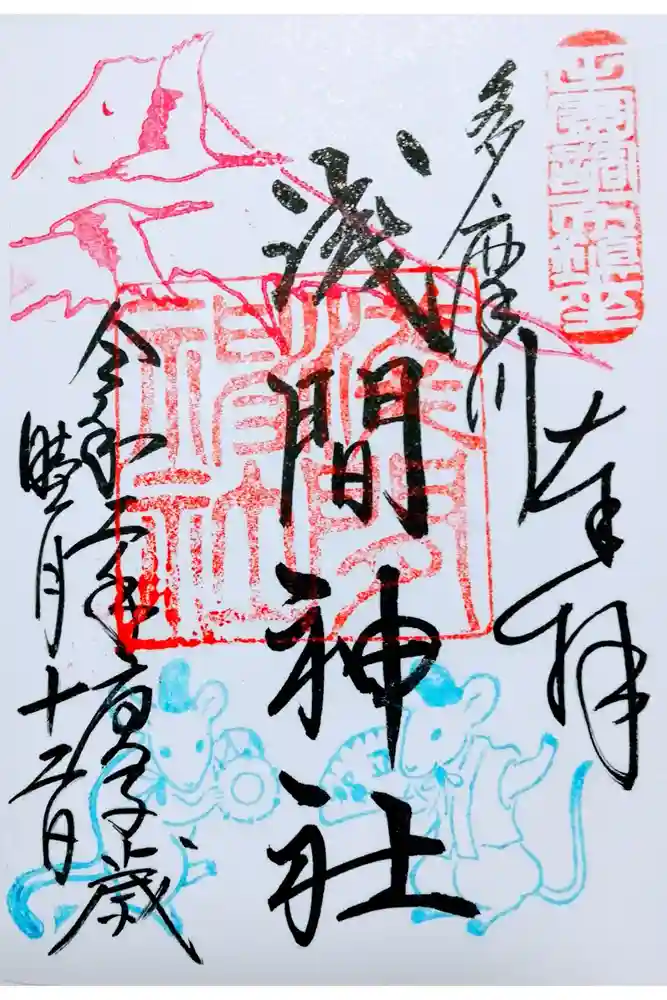 奉拝
多摩川
浅間神社
令和二年 庚子歳
睦月十二日